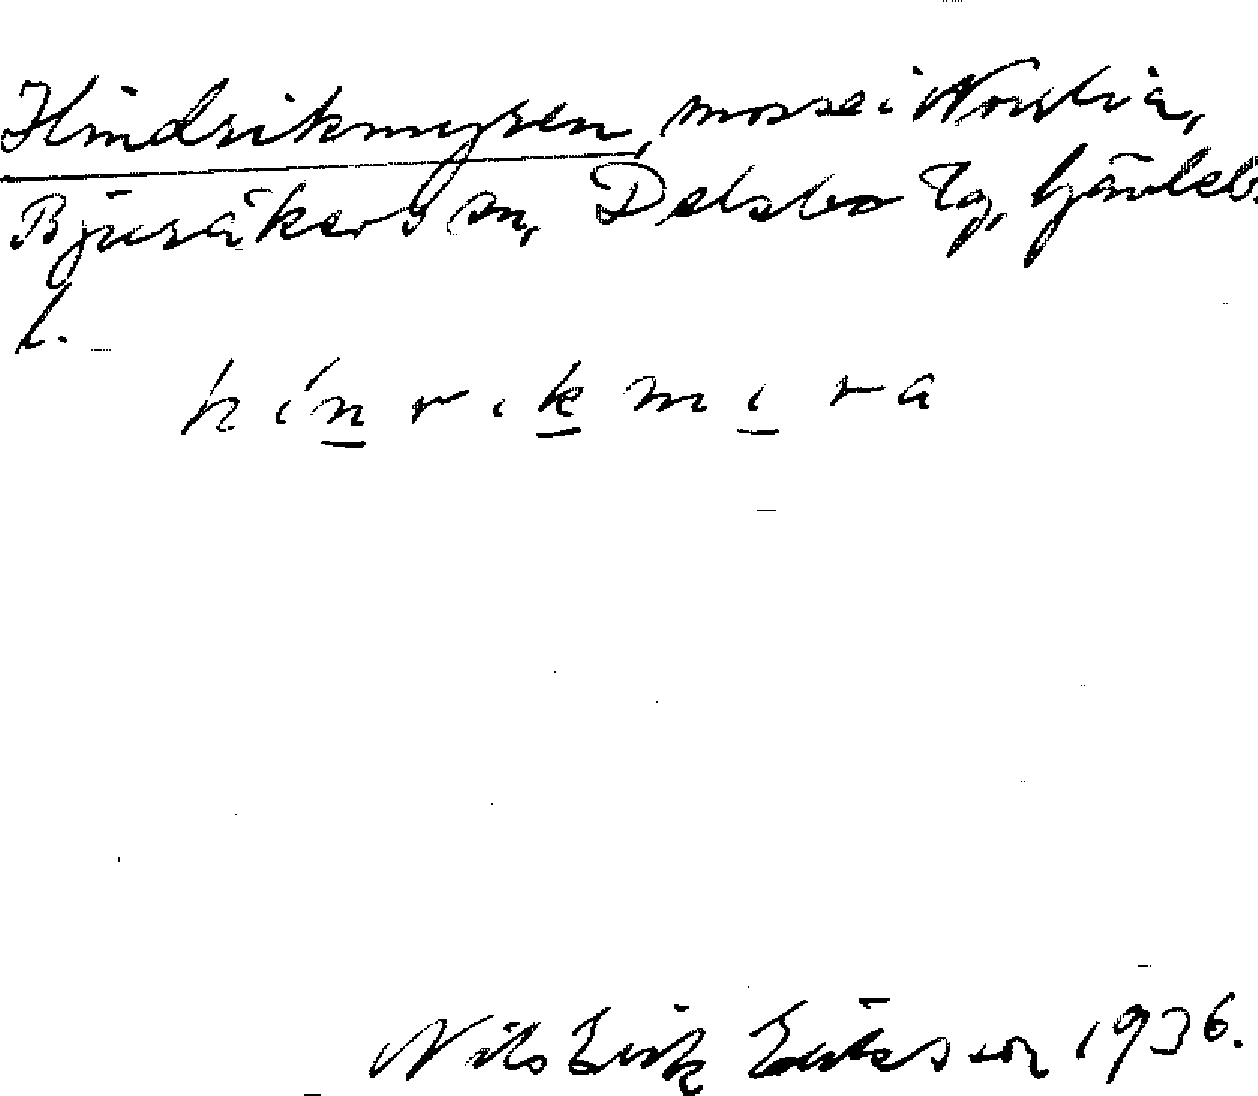 Hindrikmyren, mosse i Norrbia,
Bjuråkers sn, Delsbo tg, Gävleb.
l.
hinrikmira
Nils Erik Eriksson 1936.